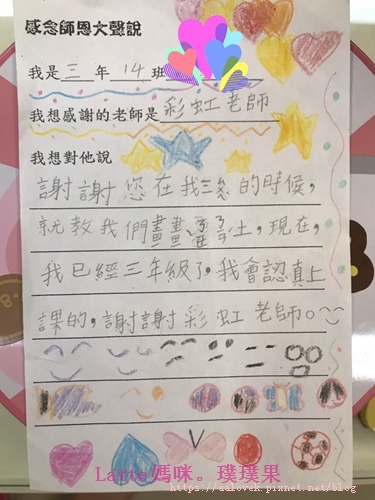 感念師恩大聲說
我是三年14班
我想感謝的老師是彩虹老師
我想對他說
謝謝您在我三的時候，
就教我們畫畫土，現在，
我已經三年級了，我會認真上
課的，謝謝彩虹老師。
Latte媽咪。璞璞果
https://aalovek.pixnet.net/blog